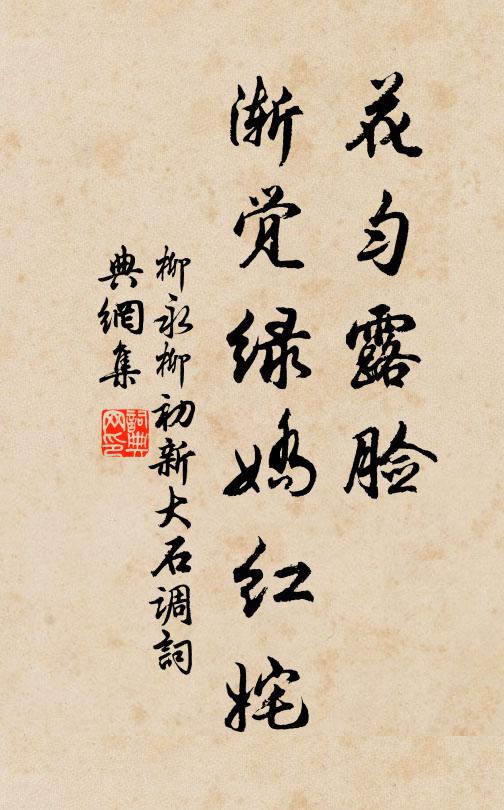 花匀露脸
渐觉绿娇红姹
柳永柳初新大石调詞
典網集
詞典网印